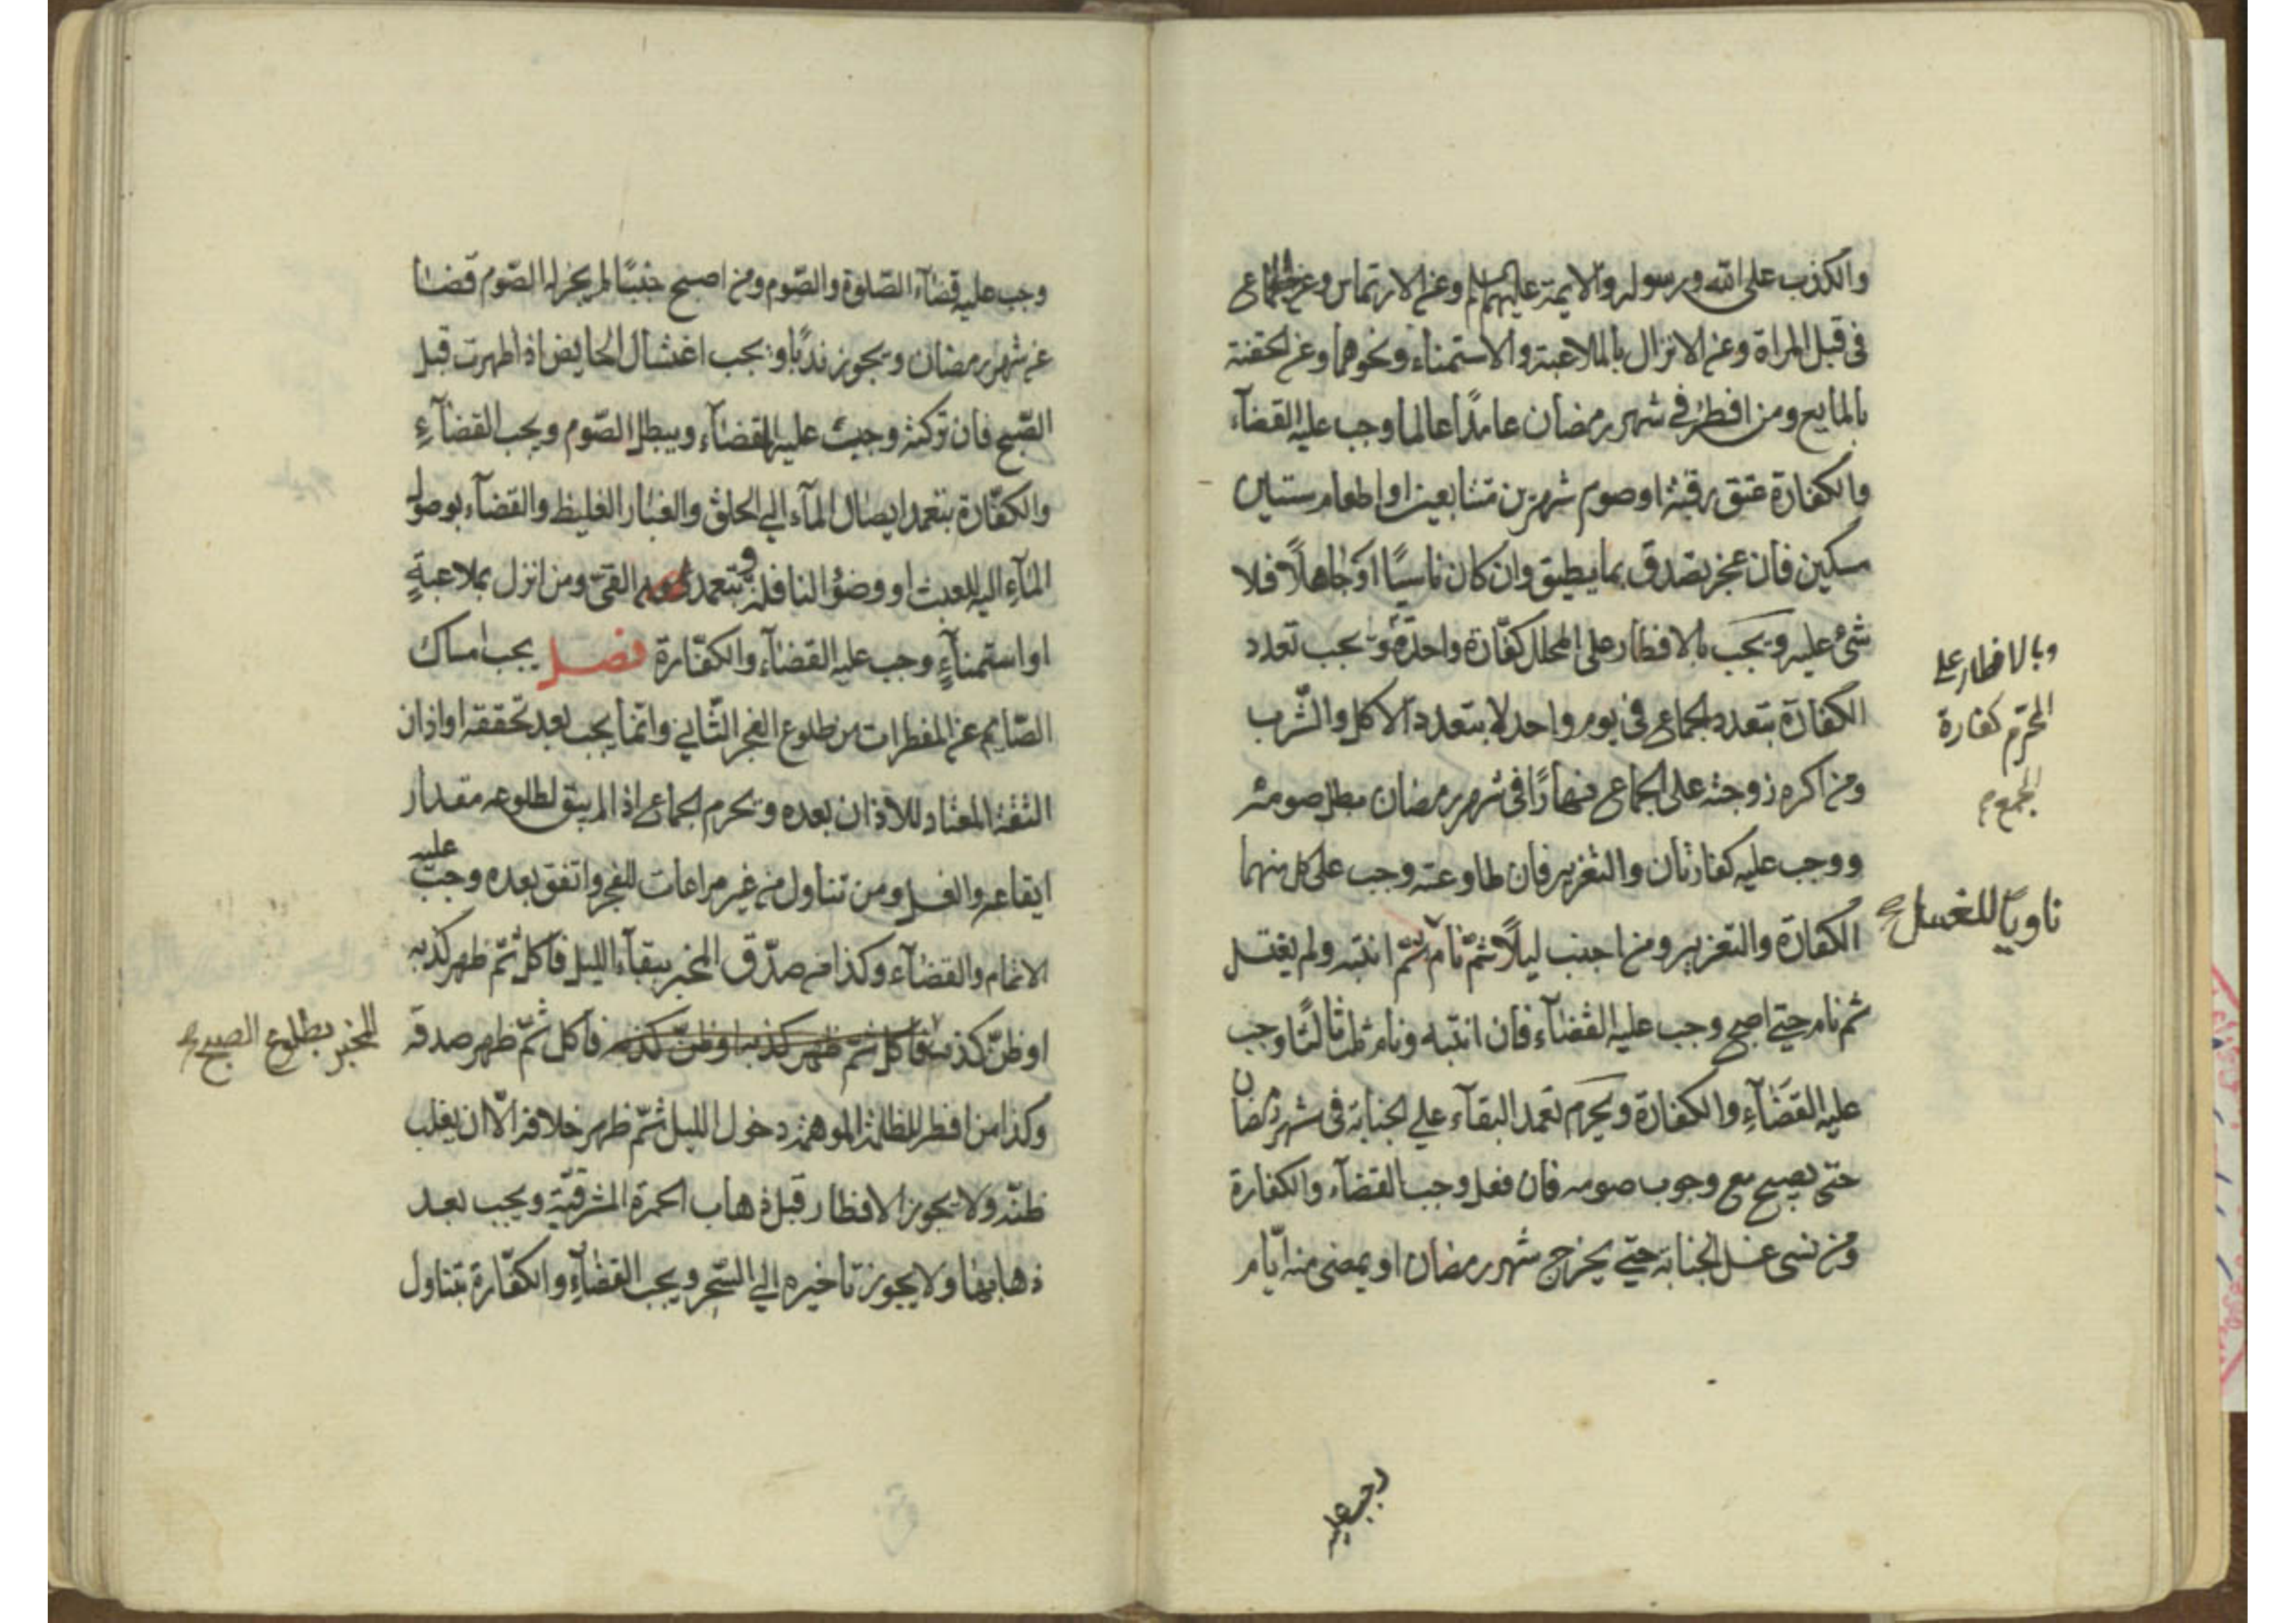 والكذب على الله ورسوله والايمة عليهم السلم وعن الارتماس وعن الجماع
فى قبل المراة وعن الانزال بالملاعبة والاستمناء ونحوهما وعن الحقنة
بالمايع ومن افطر فى شهر رمضان عامدًا عالما وجب عليه القضآء
والكفارة عتق رقبة او صوم شهرين متتابعين او اطعام ستين
مسكين فان عجز تصدق بما يطيق وان كان ناسيًا او جاهلًا فلا
شئ عليه ويجب بالافطار على المحلل كفّارة واحدة ويجب تعدد
الكفارة بتعدد الجماع فى يوم واحد لا بتعدد الاكل والشّرب
ومن اكره زوجته على الجماع نهارًا فى شهر رمضان بطل صومه
ووجب عليه كفارتان والتعزير فان طاوعته وجب على كل منهما
الكفارة والتعزير ومن اجنب ليلًا ثمّ نام ثمّ انتبه ولم يغتسل
ثم نام حتى اصبح وجب عليه القضآء فان انتبه ونام ثالثًا وجب
عليه القضآء والكفارة ويحرم تعمد البقآء على الجنابة فى شهر رمضان
حتى يصبح مع وجوب صومه فان فعل وجب القضآء والكفارة
ومن نسى غسل الجنابة حتى يخرج شهر رمضان او يمضى منه ايّام
وبالافطار على
المحرّم كفارة
الجمع
ناويًا للغسل
وجب عليه
وجب عليه قضآء الصّلوة والصّوم ومن اصبح جنبًا لم يجز له الصّوم قضآءًا
عن شهر رمضان ويجوز ندبًا ويجب اغتسال الحايض اذا طهرت قبل
الصّبح فان تركته وجبت عليها القضآء ويبطل الصّوم ويجب القضآء
والكفّارة بتعمد ايصال المآء الى الحلق والغبار الغليظ والقضآء بوصول
المآء اليه للعبث او وضؤ النافلة و بتعمد القئ ومن انزل بملاعبةٍ
او استمنآءٍ وجب عليه القضآء والكفّارة فصل يجب امساك
الصّايم عن المفطرات من طلوع الفجر الثّانى وانّما يجب بعد تحققه او اذان
الثقة المعتاد للاذان بعده ويحرم الجماع اذا لم يبق لطلوعه مقدار
ايقاعه والغسل ومن تناول من غير مراعات للفجر واتفق بعده وجب عليه
الاتمام والقضآء وكذا من صدّق المخبر ببقآء الليل فاكل ثمّ ظهر كذبه
او ظنّ كذب فاكل ثمّ ظهر كذبه او ظنّ كذبه فاكل ثمّ ظهر صدقه
وكذا من افطر للظلمة الموهمة دخول الليل ثمّ ظهر خلافه الّا ان يغلب
ظنّه ولا يجوز الافطار قبل ذهاب الحمرة المشرقيّة ويجب بعد
ذهابها ولا يجوز تاخيره الى السّحر ويجب القضآء والكفّارة بتناول
المخبر بطلوع الصبح